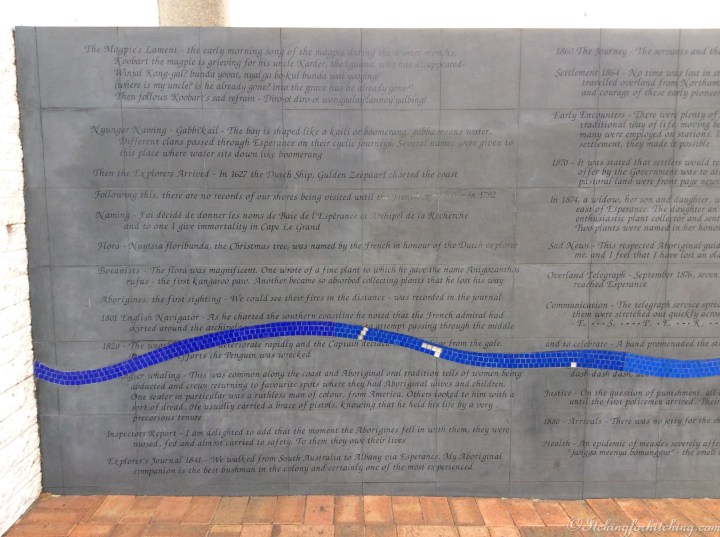 The Magpie's Lament - the early morning song of the magpie during the winter months.
Koobart the magpie is grieving for his uncle Karder, the iguana, who has disappeared-
Winjal Kong-gal? bunda
(where is my uncle? is he already gone? into the grave has he already gone?
Then follows Koobart's sad refrain -
Nyungar Naming - Gabbi Kail - The bay is shaped like a kaili or boomerang, gabba means water.
Different clans passed through Esperance on their cyclic journeys. Several names were given to
this place where water sits down like boomerang
Then the Explorers Arrived - In 1627 the Dutch Ship, Gulden Zeepaart charted the coast
Following this, there are no records of our shores being visited until the French 1792
Naming - J'ai décidé de donner les noms de Baie de l'Espérance et Archipel de la Recherche
and to one I give immortality in Cape Le Grand
Flora - Nuytsia floribunda, the Christmas tree, was named by the French in honour of the Dutch explorer
Botanists - The flora was magnificent. One wrote of a fine plant to which he gave the name Anigozanthos
rufus - the first kangaroo paw. Another became so absorbed collecting plants that he lost his way
Aborigines, the first sighting - We could see their fires in the distance - was recorded in the journal
1801 English Navigator - As he charted the southern coastline he noted that the French admiral had
skirted around the attempt passing through the middle
the deteriorate rapidly and the Captain from the gale.
efforts the Penguin was wrecked
whaling - This was common along the coast and Aboriginal oral tradition tells of women being
abducted and crews returning to favourite spots where they had Aboriginal wives and children.
One sealer in particular was a ruthless man of colour, from America. Others looked to him with a
sort of dread. He usually carried a brace of pistols, knowing that he held his life by a very
precarious tenure
Inspectors Report - I am delighted to add that the moment the Aborigines fell in with them, they were
nursed, fed and almost carried to safety. To them they owe their lives
Explorer's Journal 1841 - We walked from South Australia to Albany via Esperance. My Aboriginal
companion is the best bushman in the colony and certainly one of the most experienced
1860 The Journey - The servants and the
Settlement 1864 - No time was lost in
travelled overland from Northam
and courage of these early pioneers
Early Encounters - There were plenty of
traditional way of life, moving
many were employed on stations.
settlement, they made it possible
1870 - It was stated that settlers would
offer by the Government was to
pastoral land were from
In 1874, a widow, her son and daughter,
east of Esperance. The daughter
enthusiastic plant collector and
Two plants were named in her honour
Sad News - This respected Aboriginal
me, and I feel that I have lost an old
Overland Telegraph - September 1876,
reached Esperance
Communication - The telegraph service
them were stretched out quickly
E. ... S. . P. . E. . R.
and to celebrate - A band promenaded the
dash dash dash
Justice - On the question of punishment, all
until the first policemen arrived. Their
1880 - Arrivals - There was no jetty for the
Health - An epidemic of measles severely
"jangga meenya bomunggur" - the smell
©Itchingforhitching.com